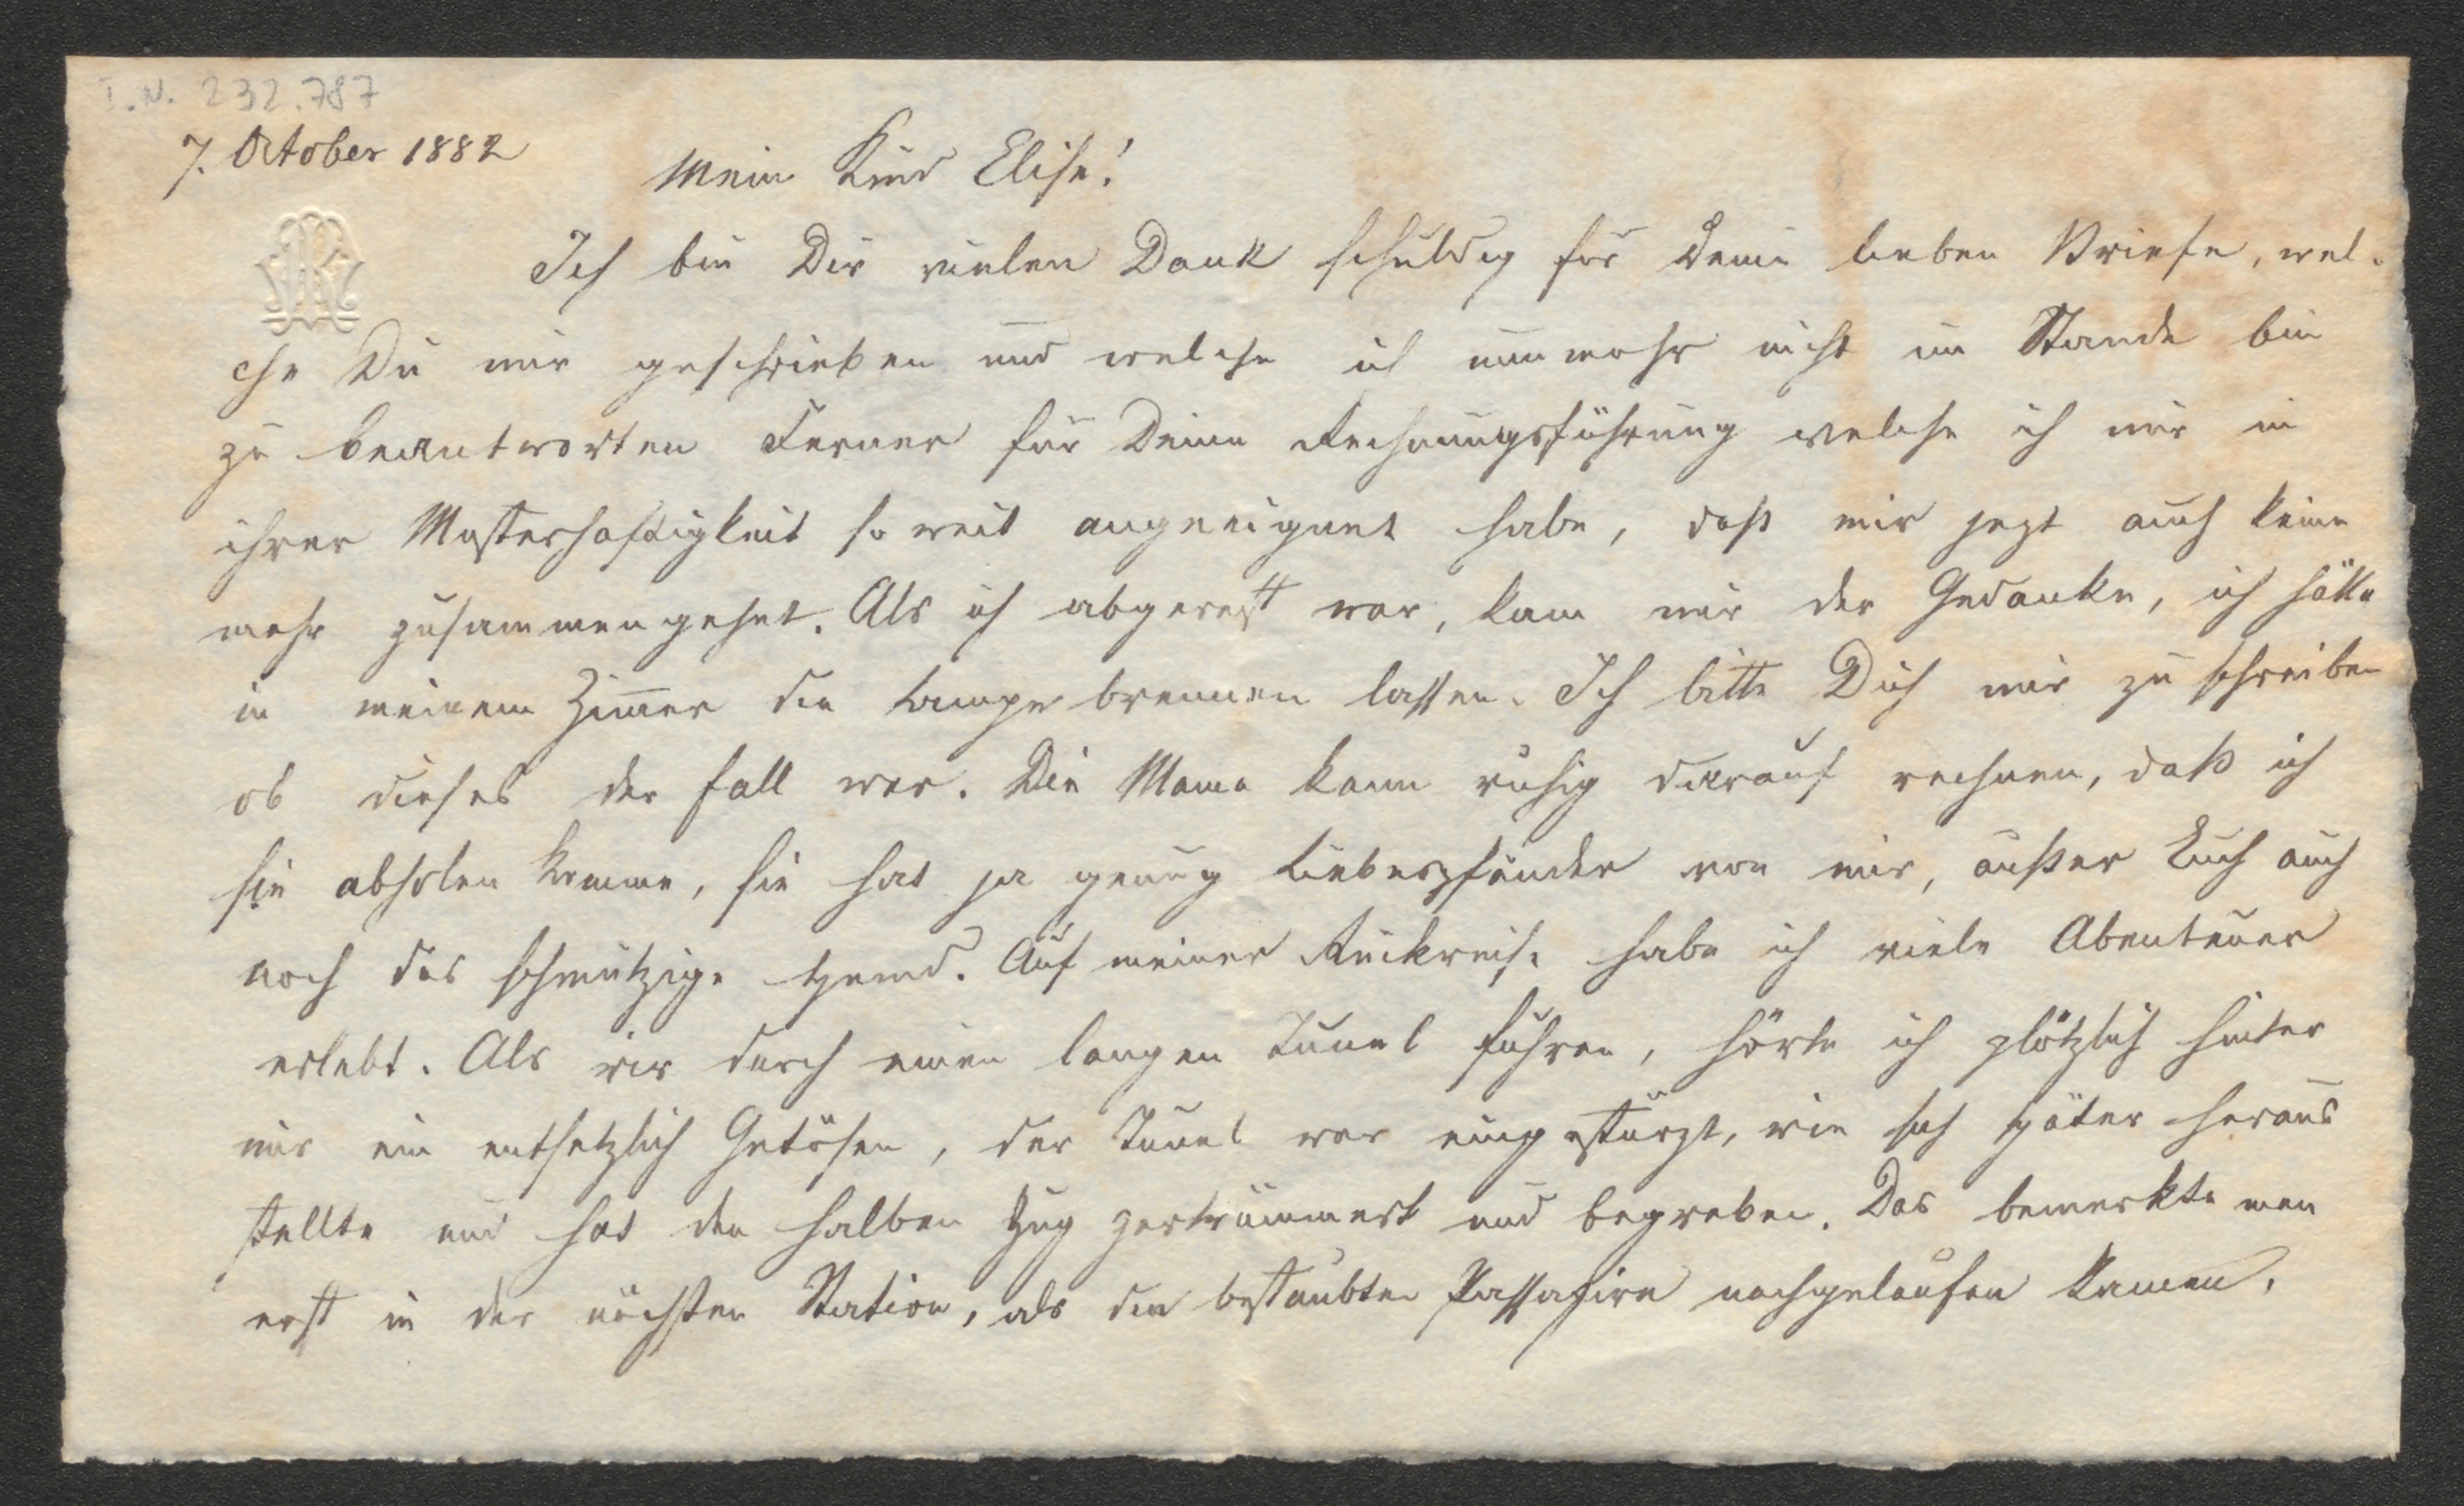 I.N. 232.787
7. October 1882
Mein Kind Elise!
Ich bin Dir vielen Dank schuldig für Deine lieben Briefe, wel-
che Du mir geschrieben und welche ich nunmehr nicht im Stande bin
zu beantworten Ferner für Deine Rechnungsführung welche ich mir in
ihrer Musterhaftigkeit so weit angeeignet habe, daß mir jezt auch keine
mehr zusammengehet. Als ich abgerest war, kam mir der Gedanke, ich hätte
in meinem Zimmer die Lampe brennen lassen. Ich bitte Dich mir zu schreiben
ob dieses der Fall war. Die Mama kann ruhig darauf rechnen, daß ich
sie abholen komme, sie hat ja genug Liebespfänder von mir, außer Euch auch
noch das schmutzige Hemd. Auf meiner Rückreise habe ich viele Abenteuer
erlebt. Als wir durch einen langen Tunel fuhren, hörte ich plötzlich hinter
mir ein entsetzlich Getösen, der Tunel war eingestürzt, wie sich später heraus
stellte und hat den halben Zug zertrümmert und begraben. Das bemerkte man
erst in der nächsten Station, als die bestaubten Passagire nachgelaufen kamen.